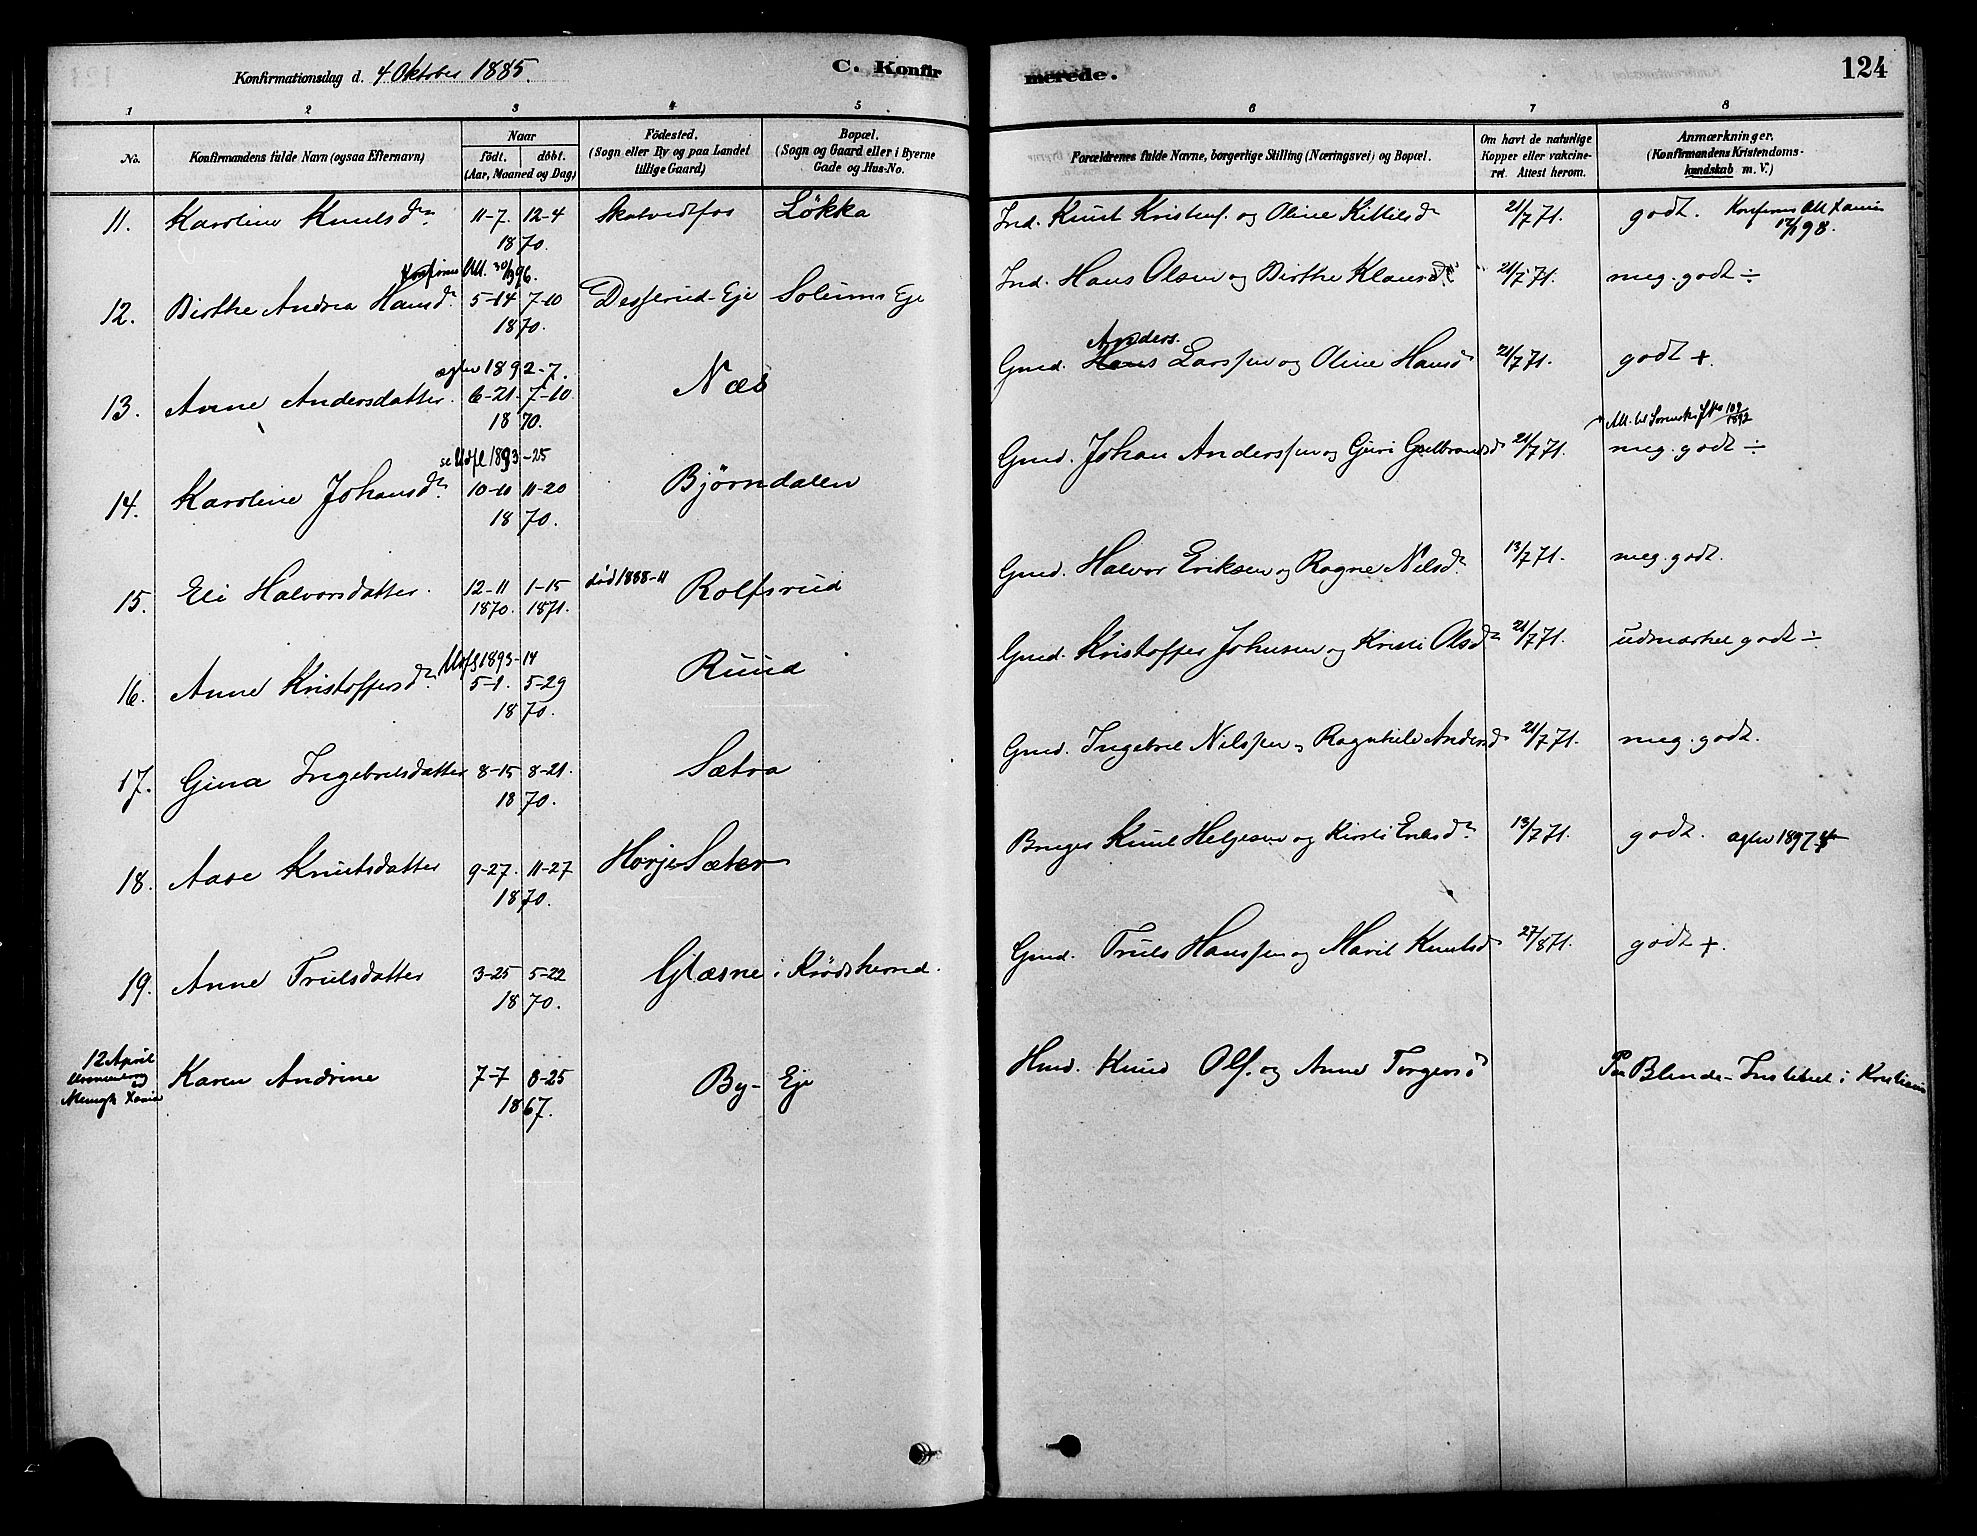 Konfirmationsdag d. 4 Oktober 1885.
C. Konfirmerede.
124
1 2 3 4 5 6 7 8
No.
Konfirmandens fulde Navn (ogsaa Efternavn)
Naar
födt. döbt.
(Aar, Maaned og Dag)
Födested.
(Sogn eller By og paa Landet
tillige Gaard)
Bopæl.
(Sogn og Gaard eller i Byerne
Gade og Hus-No.
Forældrenes fulde Navne, borgerlige Stilling (Næringsvei) og Bopæl.
Om havt de naturlige
Kopper eller vakcine-
ret. Attest herom.
Anmærkninger.
(Konfirmandens Kristendoms-
kundskab m. V.)
11. Karoline Knutsdr 11-7. 12-4 Skatvedtfos Løkka Ind. Knut Kristens. og Oline Kittilsd 21/7 71. godt. Konfirms Att
1870. 17/1 98.
Konfirms Att. 30/3 96.
12. Birthe Andrea Hansdr 5-14 7-10 Desserud-Eje Solums Eje Ind. Hans Olsen og Birthe Klausd. 21/7 71. meg. godt ÷
1870.
Anders.
ægtev 1892-7.
13. Anne Andersdatter. 6-21. 7-10 Næs Gmd. Hans Larssen og Oline Hansd 21/7 71. godt +.
1870.
Att. 109/1892
se Udfl 1893-25
14. Karoline Johansdr 10-10 11-20 Bjørndalen Gmd. Johan Anderssen og Guri Gulbrandsd 21/7 71. meg. godt ÷
1870.
15. Eli Halvorsdatter. 12-11 1-15 død 1888-11 Rolfsrud Gmd. Halvor Eriksen og Ragne Nilsd. 13/7 71. meg. godt.
1870. 1871.
Udfl 1893-14
16. Anne Kristoffersdr 5-1. 5-29 Ruud Gmd. Kristoffer Johnsen og Kristi Olsd 21/7 71. udmærket godt ÷
1870.
17. Gina Ingebretsdatter 8-15 8-21. Sætra Gmd. Ingebret Nilssen og Ragnhild Andersd 21/7 71. meg. godt.
1870.
18. Aase Knutsdatter 9-27. 11-27 Horje Sæter Bruger Knut Helgesen og Kirsti Eriksd. 13/7 71. godt. ægtev 1897
1870.
19. Anne Trulsdatter 3-25 5-22 Glæsne i Krødsherred. Gmd. Truls Hanssen og Marit Knutsd 27/8 71. godt +.
1870.
12 April
Karen Andrine 7-7 8-25 By-Eje Hmd. Knud Ols. og Anne Torgersd Paa Blinde-Institutet i Kristiania
1867.